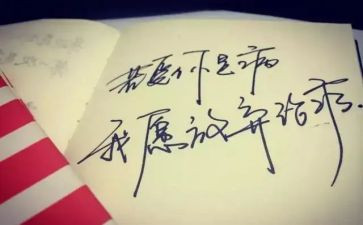 若爱你是病
我愿放弃治疗.